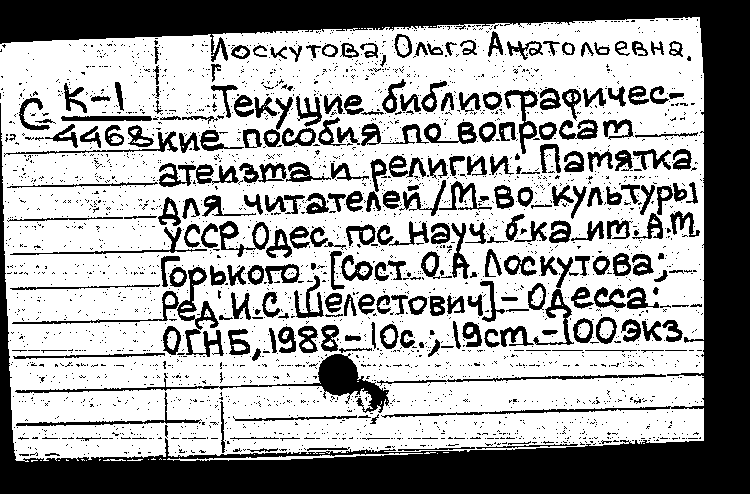 Лоскутова, Ольга Анатольевна.
С К-1
4468
Текущие библиографичес-
кие пособия по вопросам
атеизма и религии: Памятка
для читателей / М-во культуры
УССР, Одес. гос. науч. б-ка им. А.М.
Горького; [Сост. О.А. Лоскутова;
Ред. И.С. Шелестович] - Одесса:
ОГНБ, 1988 - 10с.; 19см. - 100экз.